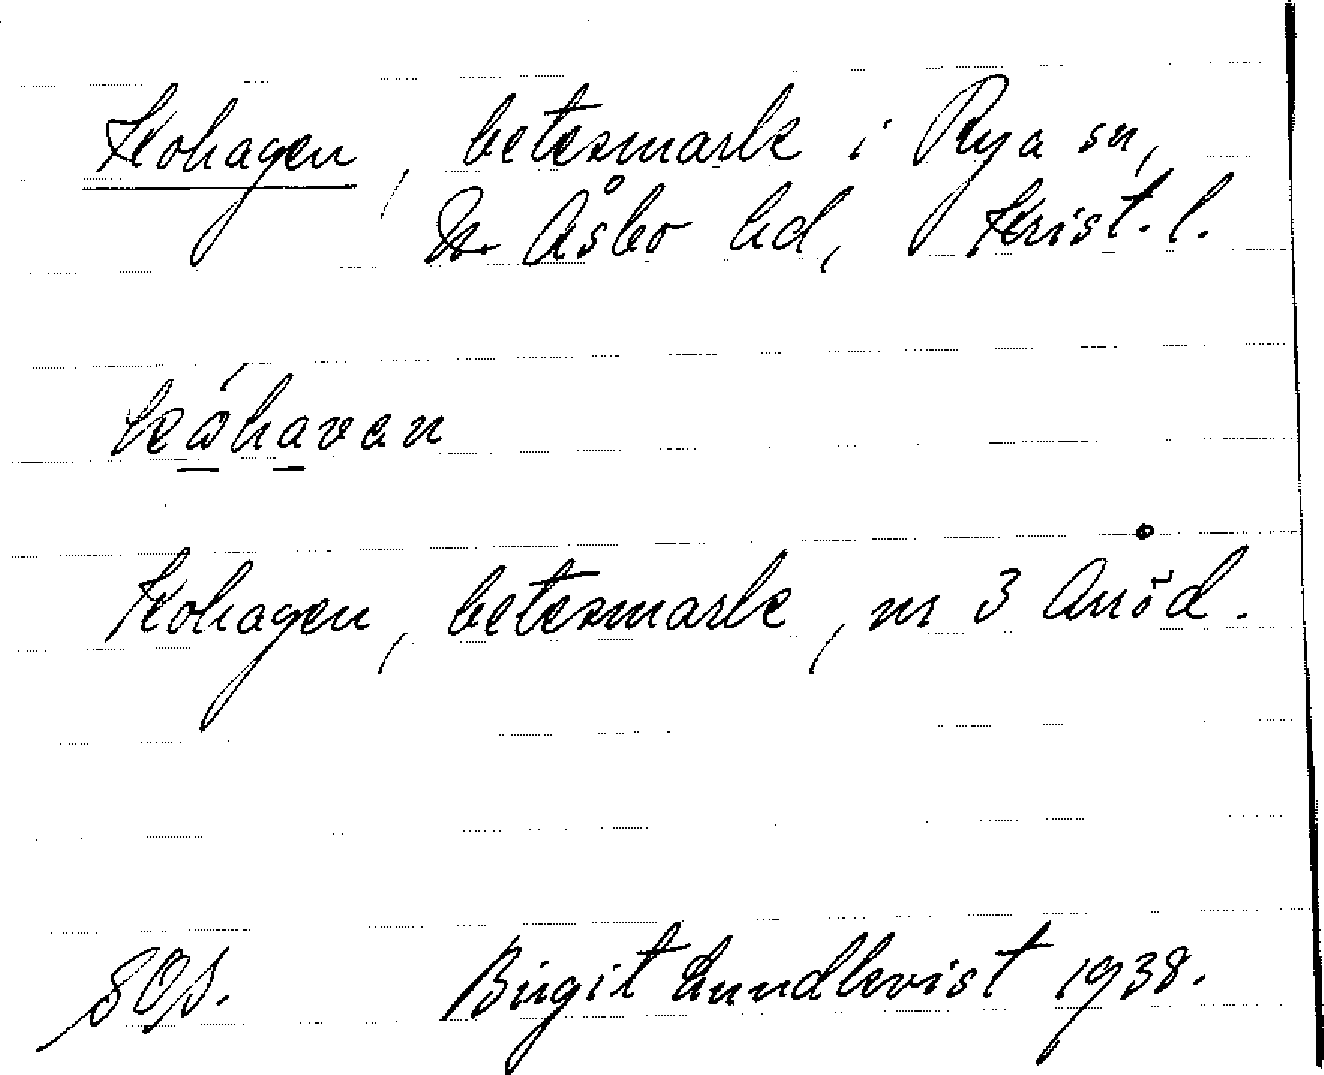 Kohagen, betesmark i Rya sn,
N. Åsbo hd, Krist. l.
kǻhavan
Kohagen, betesmark, nr 3 Ånöd.
Birgit Lundkvist 1938.